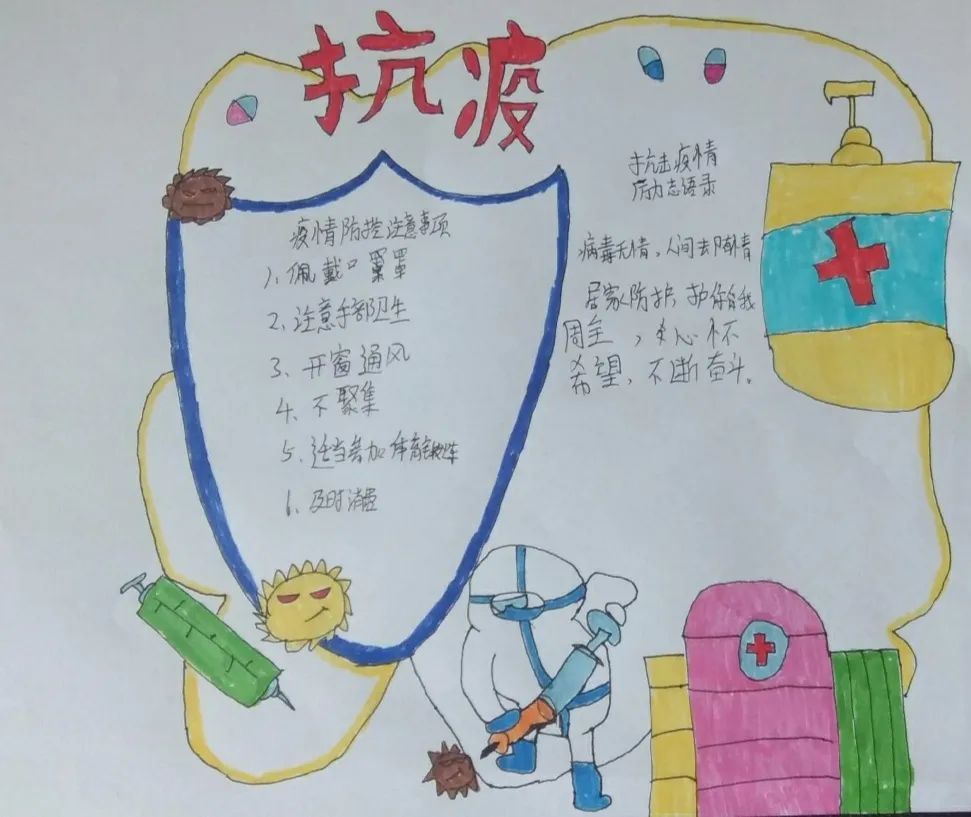 抗疫
疫情防控注意事项
1、佩戴口罩
2、注意手部卫生
3、开窗通风
4、不聚集
5、适当参加体育锻炼
6、及时消
抗击疫情
励志语录
病毒无情，人间去有情
居家防护，护你自我
周全，心怀
希望，不断奋斗。